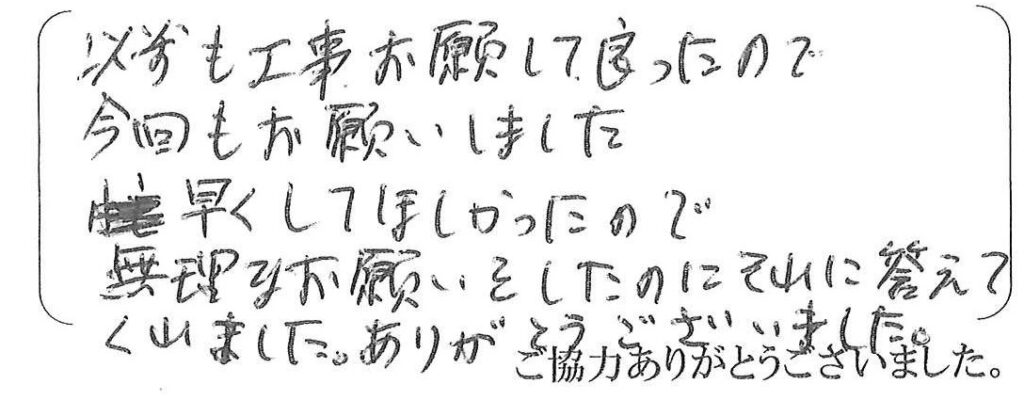 以前も工事お願して良ったので
今回もお願いしました
早くしてほしかったので
無理なお願いをしたのにそれに答えて
くれました。ありがとうございました。
ご協力ありがとうございました。